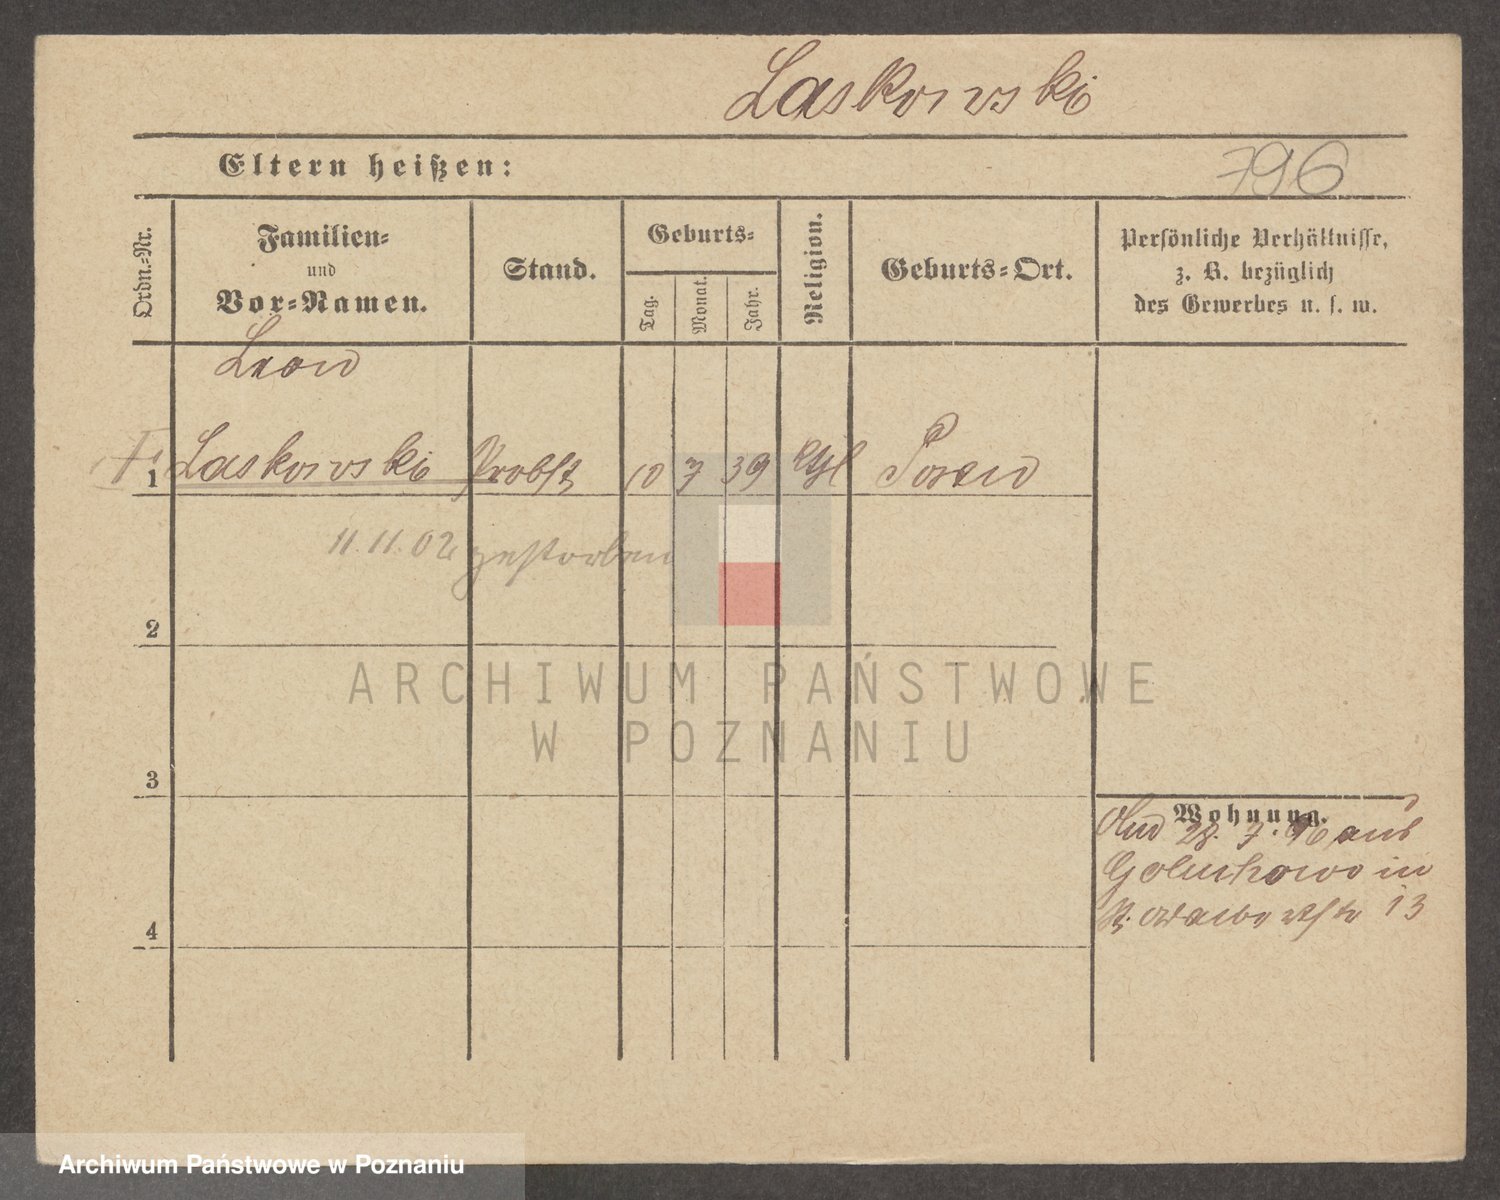 Laskowski
Eltern heißen:
796
Ordn.-Nr.
Familien-
und
Vor-Namen.
Stand.
Geburts-
Tag.
Monat.
Jahr.
Religion.
Geburts-Ort.
Persönliche Verhältnisse,
z. B. bezüglich
des Gewerbes u. s. w.
Leon
1 Laskowski Probst 10 7 39 Ktl Posen
11.11.02 gestorben
2
3
4
Wohnung.
28. 7. 96 aus
Goluchowo in
St. 13
ARCHIWUM PAŃSTWOWE
W POZNANIU
Archiwum Państwowe w Poznaniu